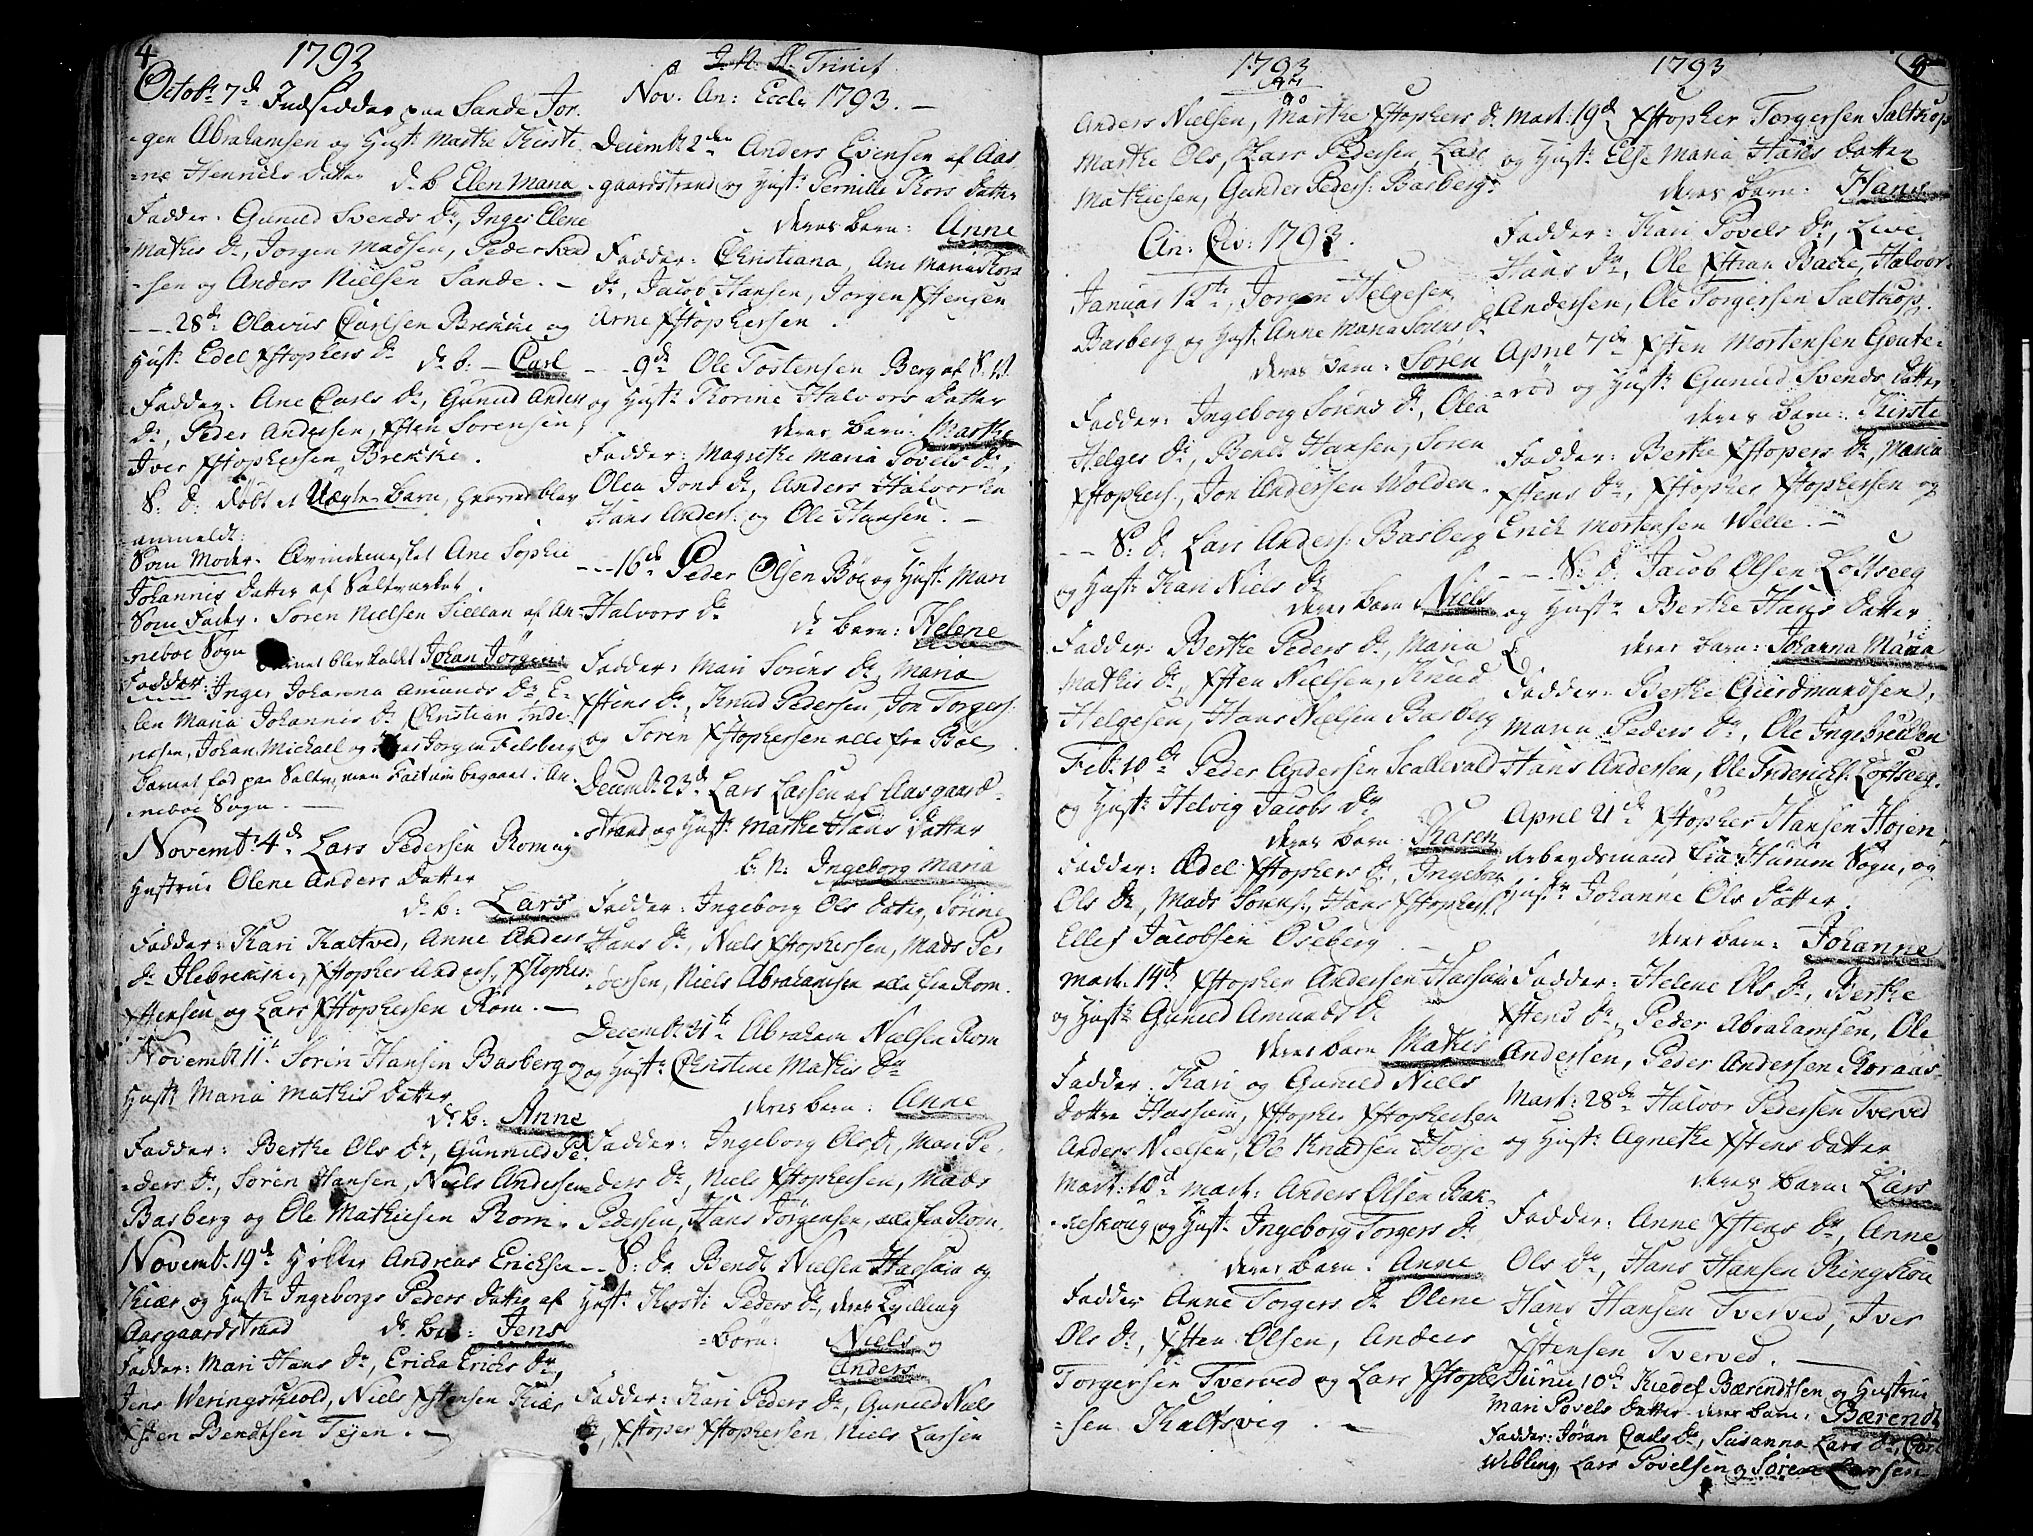 4
1792
Octobr 7de Indsidder paa Sande Jor-
-gen Abrahamsen og Hust: Marthe Kirsti-
-ne Henrichs datter d: b: Elen Maria
Fadder: Gunild Svends Dr, Inger Elene
Mathis Dr, Jorgen Madsen, Peder
-sen og Anders Nielsen Sande. -
--- 28de Olavus Carlsen Brekke og
Hust: Edel Xstophers Dr d: b: - Carl
Fadder: Ane Carls Dr, Gunild Anders
Dr, Peder Andersen, Xsten Sorensen,
Iver Xstophersen Brekke.
S: D: døbt et Uægte barn, hvorved blev
anmeldt:
Som Moder: Qvindemesket Ane Sophie
Johannis datter af Saltverket.
Som Fader: Soren Nielsen af An-
-neboe Sogn blev kaldt Johan Jörgen
Fadder: Inger Johanna Amunds Dr E-
-len Maria Johannis Dr Christian
Johan Michael og Jorgen Felsberg
Barnet fød paa Saltv: men begaaet i An-
-neboe Sogn. -
Novembr: 4de Lars Pedersen Rom og
Hustrue Olene Anders datter
d: b: Lars
Fadder: Kari Kaltved, Anne Anders
Dr Ilebrekke, Xstopher Anders: Xstopher
Xstensen og Lars Xstophersen Rom. -
Novembr 11te Sorin Hansen Basberg og
Hust: Maria Mathis datter
d: b: Anne
Fadder: Berthe Ols Dr, Gunnild Pe-
-ders Dr, Søren Hansen, Niels Andersen
Basberg og Ole Mathiesen Rom.
Novembr 19de Andreas Ericksen
Kiær og Hust: Ingeborg Peders datter af
Aasgaardstrand d: ba: Jens
Fadder: Mari Hans Dr, Ericka Ericks Dr,
Jens Weringskiold, Niels Xstensen Kiær
Xsten Bendtsen Teyen. -
J. N. S. Trinit
Nov. An: Eccl: 1793. -
Decembr 2den Anders Evensen af Aas-
-gaardstrand og Hust: Pernille Thors datter
deres barn: Anne
Fadder: Christiana, Ane Maria Thors
Dr, Jacob Hansen, Jorgen Xstensen
Arne Xstophersen.
--- 9de Ole Tostensen Berg af S: V:
og Hust: Thorine Halvors datter
deres barn: Marthe
Fadder: Magrethe Maria Povels Dr,
Olea Jons Dr, Anders Halvorsen
Hans Anders: og Ole Hansen. -
--- 16de Peder Olsen Böe og Hust: Mari
Halvors Dr
d: barn: Helene
Fadder: Mari Sörens Dr Maria
Xstens Dr, Knud Pedersen, Jon Torgers:
og Soren Xstophersen alle fra Böe
Decembr 23de Lars Larsen af Aasgaard-
-strand og Hust: Marthe Hans datter
B: N: Ingeborg Maria
Fadder: Ingeborg Ols datter, Sörine
Hans Dr, Niels Xstophersen, Mads Pe-
-dersen, Niels Abrahamsen alle fra Rom.
Decembr 31te Abraham Nielsen Rom
og Hust: Christine Mathis Dr
deres barn: Anne
Fadder: Ingeborg Ols Dr, Mari Pe-
-ders Dr, Niels Xstophersen, Mads
Pedersen, Hans Jörgensen, alle fra Rom.
-- S: D: Bendt Nielsen og
Hust: Kirsti Peders Dr, deres Tvilling
-börn: Niels og
Anders
Fadder: Kari Peders Dr, Gunild Niels
Dr, Xstoper Xstophersen, Niels Larsen
1793
Anders Nielsen, Marthe Xstophers Dr
Marthe Ols, Lars Pedersen, Lars
Mathiesen, Gunder Peders: Basberg:
An: Civ: 1793.
Januar 12te Jorgen Helgesen
Basberg og Hust: Anne Maria Sorens Dr
deres barn: Sören
Fadder: Ingeborg Sorens Dr, Olea
Helges Dr, Bendt Hansen, Soren
Xstophers:, Jon Andersen Wolden.
-- S: D: Lars Anders: Basberg
og Hust: Kari Niels Dr
deres barn Niels
Fadder: Berthe Peders Dr, Maria
Mathis Dr, Xsten Nielsen, Knud
Helgesen, Hans Nielsen Basberg
Feb: 10de Peder Andersen Scallevald
og Hust: Helvig Jacobs Dr
deres barn: Karen
Fadder: Adel Xstophers Dr, Ingebor
Ols Dr, Mads Hans Xstophers:
Ellef Jacobsen Oseberg. -
Mart: 14de Xstopher Andersen Hassum
og Hust: Gunild Amunds Dr
deres barn Mathis
Fadder: Kari og Gunild Niels
döttre Hassum, Xstopher Xstophersen
Anders Nielsen, Ole Knudsen
Mart: 10de Mart: Anders Olsen Bak-
-keskoug og Hust: Ingeborg Torgers Dr
deres barn: Anne
Fadder Anne Torgers Dr Olene
Ols Dr, Xsten Olsen, Anders
Torgersen Tverved og Lars Xstopher-
-sen Kaltsvig. -
1793
Mart: 19de Xstopher Torgersen Saltkop
og Hust: Else Maria Hans datter
deres barn: Hans
Fadder: Kari Povels Dr, Live
Hans Dr, Ole Xstian Backe, Halvor
Andersen, Ole Torgersen Saltkop.
April 7de Xsten Mortensen Gonte-
-röd og Hust: Gunild Svends datter
deres barn: Kirsti
Fadder: Berthe Xstopers Dr, Maria
Xstens Dr, Xstopher Xstophersen og
Erich Mortensen Welle. -
-- S: D: Jacob Olsen Loltseeg
og Hust: Berthe Hans datter
deres barn: Johanna Maria
Fadder: Berthe Guldmundsen,
Maria Peders Dr, Ole Ingebretsen
Hans Andersen, Ole Friderichs: Loltseeg.
April 21de Xstopher Hansen Højen
Arbeydsmand fra Hurum Sogn, og
Hust: Johanne Ols datter.
deres barn: Johanne
Fadder: Helene Ols Dr, Berthe
Xstens Dr, Peder Abrahamsen, Ole
Andersen, Peder Andersen Roraas.
Mart: 28de Halvor Pedersen Tverved
og Hust: Agnethe Xstens datter
deres barn: Lars
Fadder: Anne Xstens Dr, Anne
Ols Dr, Hans Hansen Ringskou
Hans Hansen Tverved, Iver
Xstensen Tverved.
Junii 10de Kiedel Bærendtsen og Hustrue
Mari Povels datter deres barn: Bærendt
Fadder: Jöran Carls Dr, Susanna Lars Dr, Carl
Wibling, Lars Povelsen og Sören Larsen